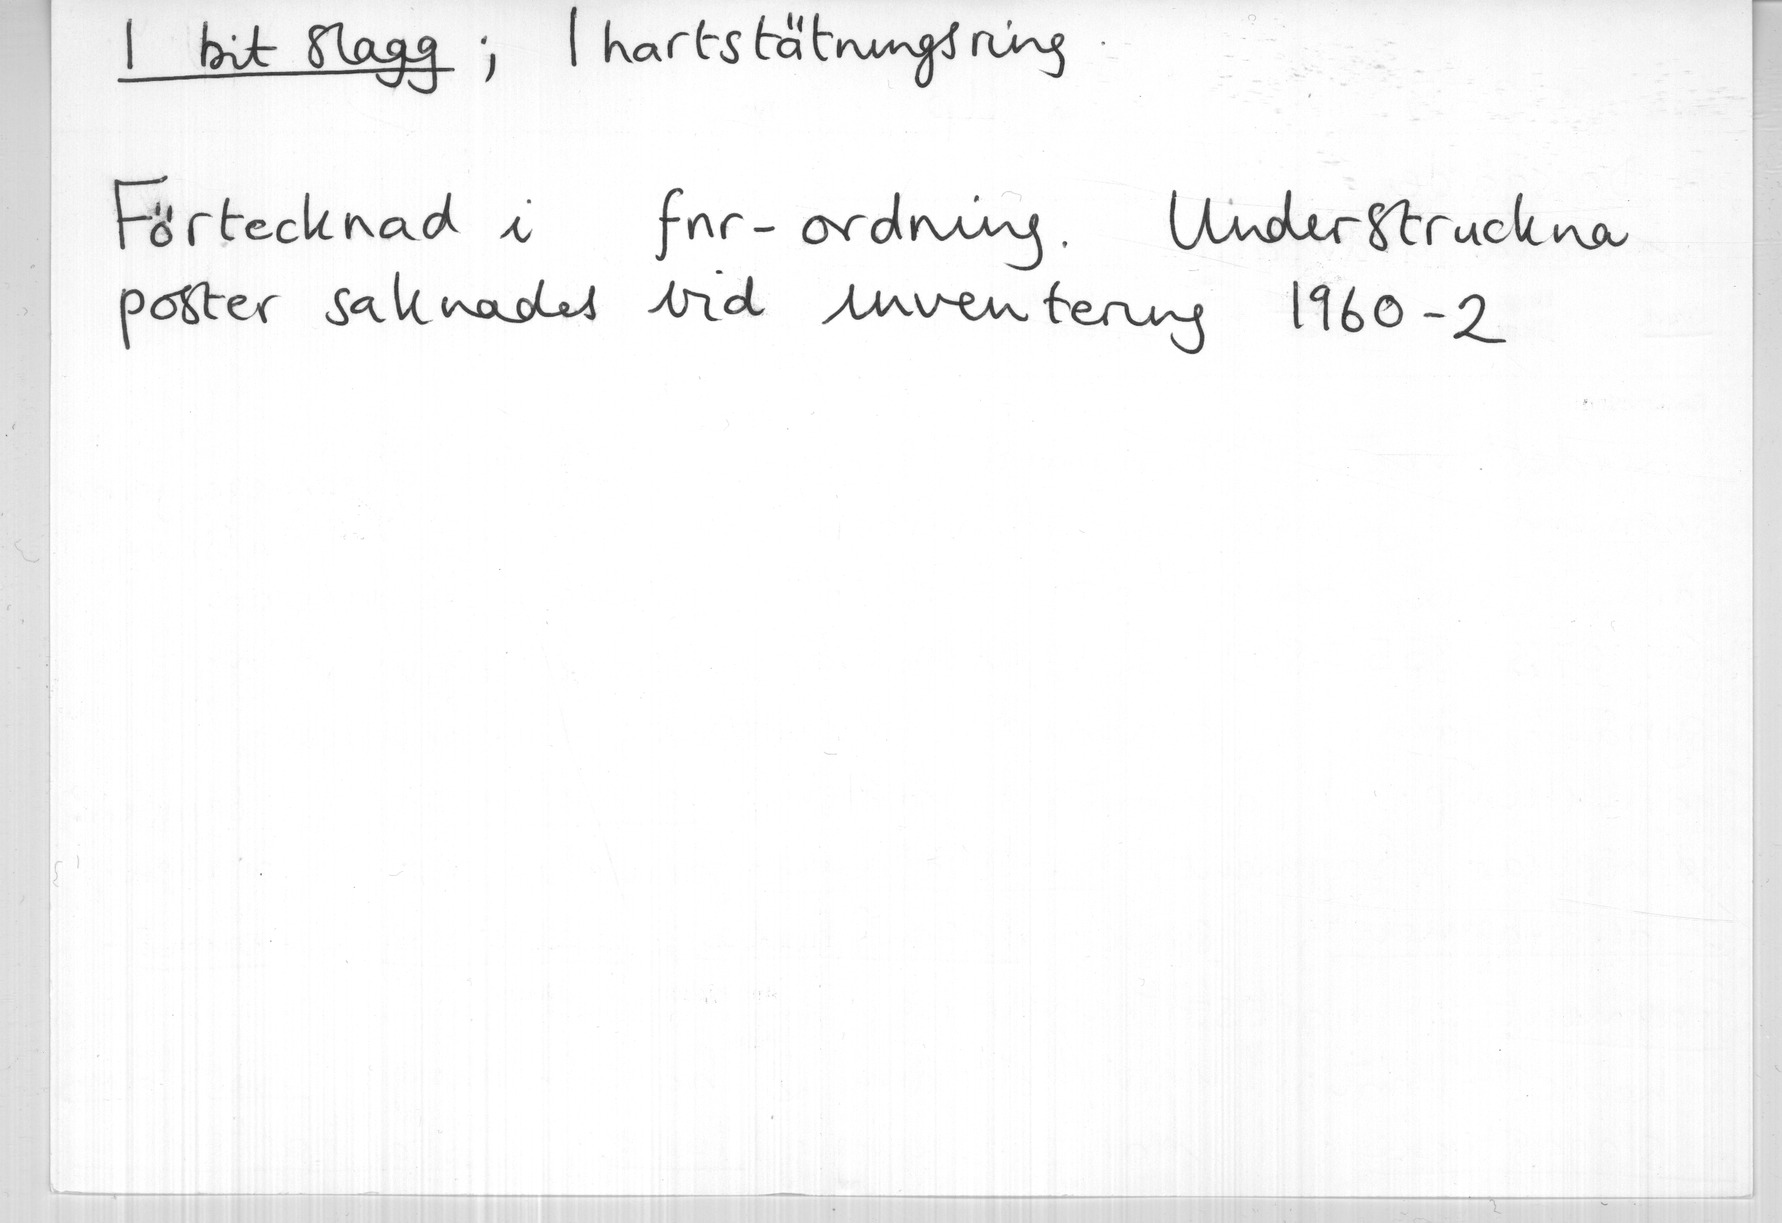 1 bit slagg; 1 hartstätningsring
Förtecknad i fnr-ordning. Understruckna
poster saknades vid inventering 1960-2